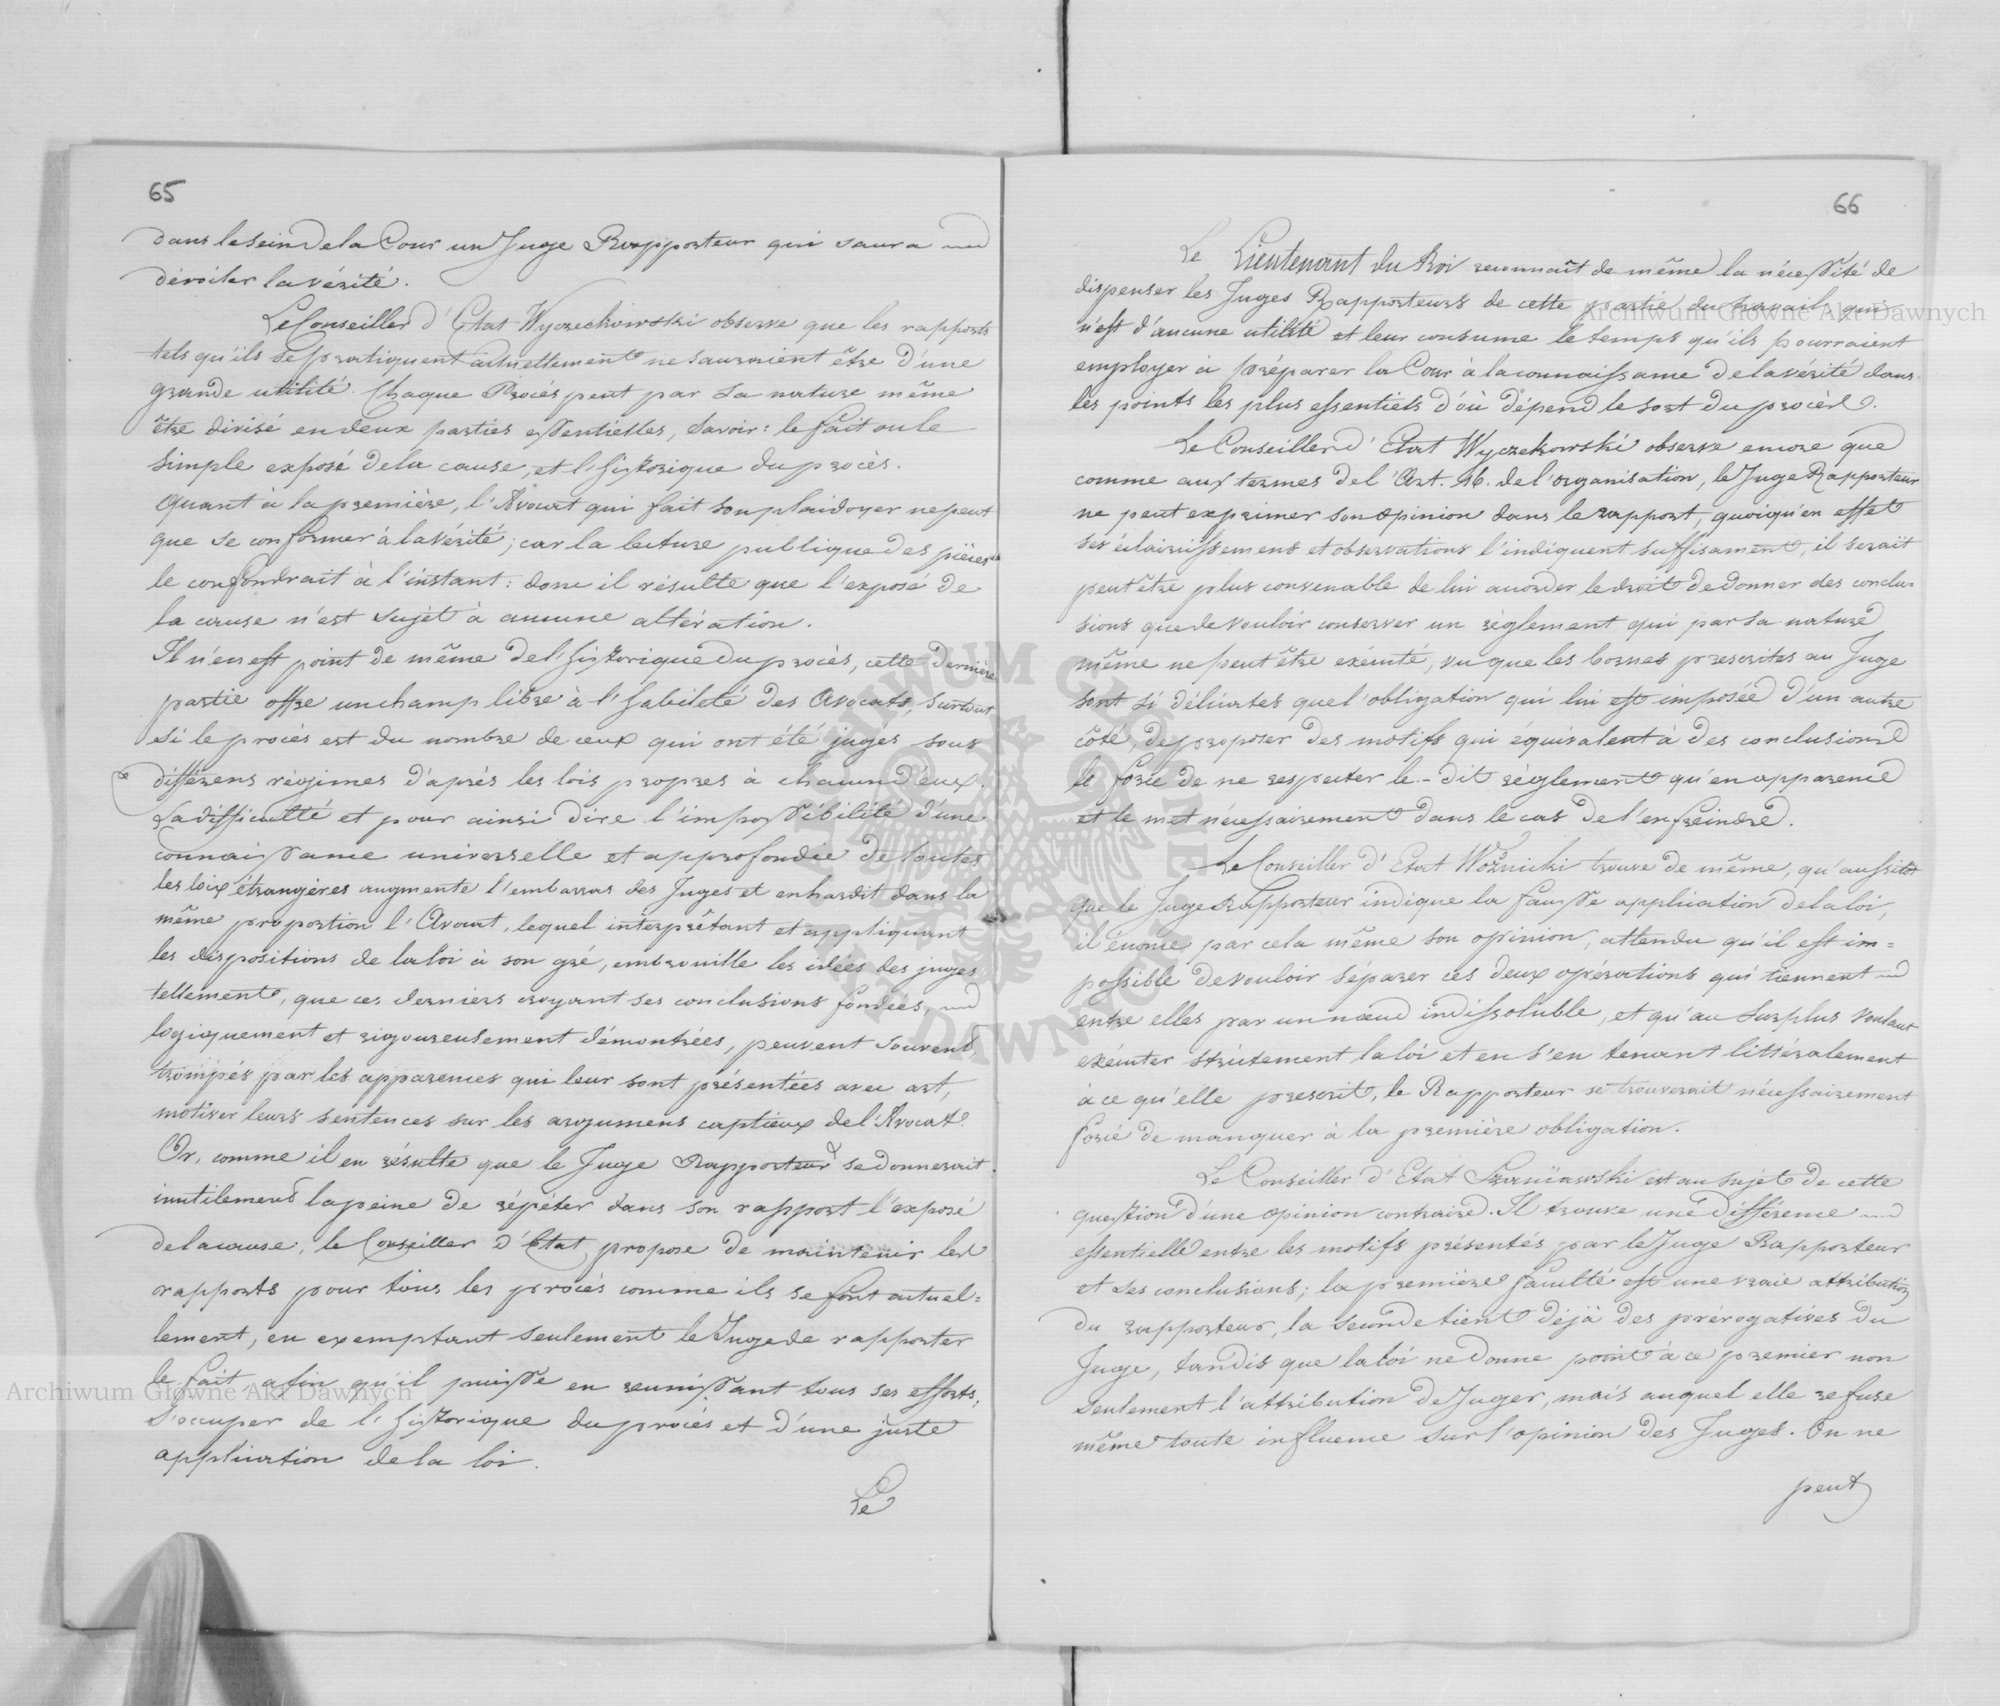 65
dans le sein de la Cour un Juge Rapporteur qui saura
dévoiler la vérité.
Le Conseiller d'Etat Wyczechowski observe que les rapports
tels qu'ils se pratiquent actuellement ne sauraient être d'une
grande utilité. Chaque Procès peut par sa nature même
être divisé en deux parties essentielles, savoir: le fait ou le
simple exposé de la cause, et l'historique du procès.
Quant à la première, l'Avocat qui fait son plaidoyer ne peut
que se conformer à la vérité; car la lecture publique des pièces
le confondrait à l'instant: donc il résulte que l'exposé de
la cause n'est sujet à aucune altération.
Il n'en est point de même de l'historique du procès, cette dernière
partie offre un champ libre à l'habileté des Avocats, surtout
si le procès est du nombre de ceux qui ont été jugés sous
différens régimes d'après les lois propres à chacun d'eux.
La difficulté et pour ainsi dire l'impossibilité d'une
connaissance universelle et approfondie de toutes
les loix étrangères augmente l'embarras des Juges et enhardit dans la
même proportion l'Avocat, lequel interprêtant et appliquant
les dispositions de la loi à son gré, embrouille les idées des juges
tellement, que ces derniers croyant ses conclusions fondées,
logiquement et rigoureusement démontrées, peuvent souvent,
trompés par les apparences qui leur sont présentées avec art,
motiver leurs sentences sur les argumens captieux de l'Avocat.
Or, comme il en résulte que le Juge Rapporteur se donnerait
inutilement la peine de répéter dans son rapport l'exposé
de la cause, le Conseiller d'Etat propose de maintenir les
rapports pour tous les procès comme ils se font actuel=
lement, en exemptant seulement le Juge de rapporter
le fait, afin qu'il puisse en reunissant tous ses efforts,
s'occuper de l'historique du procès et d'une juste
application de la loi.
Le
66
Le Lieutenant du Roi reconnaît de même la nécessité de
dispenser les Juges Rapporteurs de cette partie du travail, qui
n'est d'aucune utilité et leur consume le temps qu'ils pourraient
employer à préparer la Cour à la connaissance de la vérité dans
les points les plus essentiels d'où dépend le sort du procès.
Le Conseiller d'Etat Wyczechowski observe encore que
comme aux termes de l'Art. 16. de l'organisation, le Juge Rapporteur
ne peut exprimer son opinion dans le rapport, quoiqu'en effet
ses éclaircissemens et observations l'indiquent suffisament, il serait
peut être plus convenable de lui accorder le droit de donner des conclu-
sions que de vouloir conserver un règlement qui par sa nature
même ne peut être exécuté, vu que les bornes prescrites au Juge
sont si délicates que l'obligation qui lui est imposée d'un autre
côté, de proposer des motifs qui équivalent à des conclusions
le force de ne respecter le-dit règlement qu'en apparence
et le met nécessairement dans le cas de l'enfreindre.
Le Conseiller d'Etat Woźnicki trouve de même, qu'aussitôt
que le Juge Rapporteur indique la fausse application de la loi,
il énonce par cela même son opinion, attendu qu'il est im=
possible de vouloir séparer ces deux opérations qui tiennent
entre elles par un nœud indissoluble, et qu'au surplus voulant
exécuter strictement la loi et en s'en tenant littéralement
à ce qu'elle prescrit, le Rapporteur se trouverait nécessairement
forcé de manquer à la première obligation.
Le Conseiller d'Etat Szaniawski est au sujet de cette
question d'une opinion contraire. Il trouve une différence
essentielle entre les motifs présentés par le Juge Rapporteur
et ses conclusions; la première faculté est une vraie attribution
du rapporteur, la seconde tient déjà des prérogatives du
Juge, tandis que la loi ne donne point à ce premier non
seulement l'attribution de Juger, mais auquel elle refuse
même toute influence sur l'opinion des Juges. On ne
peut
Archiwum Główne Akt Dawnych
Archiwum Główne Akt Dawnych
ARCHIWUM GŁÓWNE AKT DAWNYCH